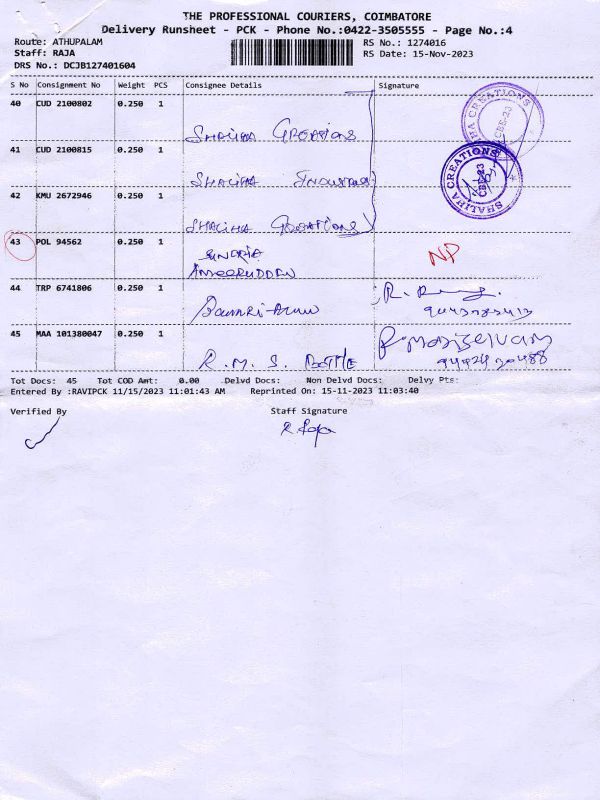 THE PROFESSIONAL COURIERS, COIMBATORE
Delivery Runsheet - PCK - Phone No.:0422-3505555 - Page No.:4
Route: ATHUPALAM
RS No.: 1274016
Staff: RAJA
RS Date: 15-Nov-2023
DRS No.: DCJB127401604
S No Consignment No Weight PCS Consignee Details Signature
40 CUD 2100802 0.250 1
SHALIHA CREATIONS
41 CUD 2100815 0.250 1
SHALIHA
42 KMU 2672946 0.250 1
SHALIHA CREATIONS
SHALIHA CREATIONS
CBE-23
43 POL 94562 0.250 1
NP
44 TRP 6741806 0.250 1
45 MAA 101380047 0.250 1
R. M. S. BOTTLE
Tot Docs: 45 Tot COD Amt: 0.00 Delvd Docs: Non Delvd Docs: Delvy Pts:
Entered By :RAVIPCK 11/15/2023 11:01:43 AM Reprinted On: 15-11-2023 11:03:40
Verified By Staff Signature
R. Raja